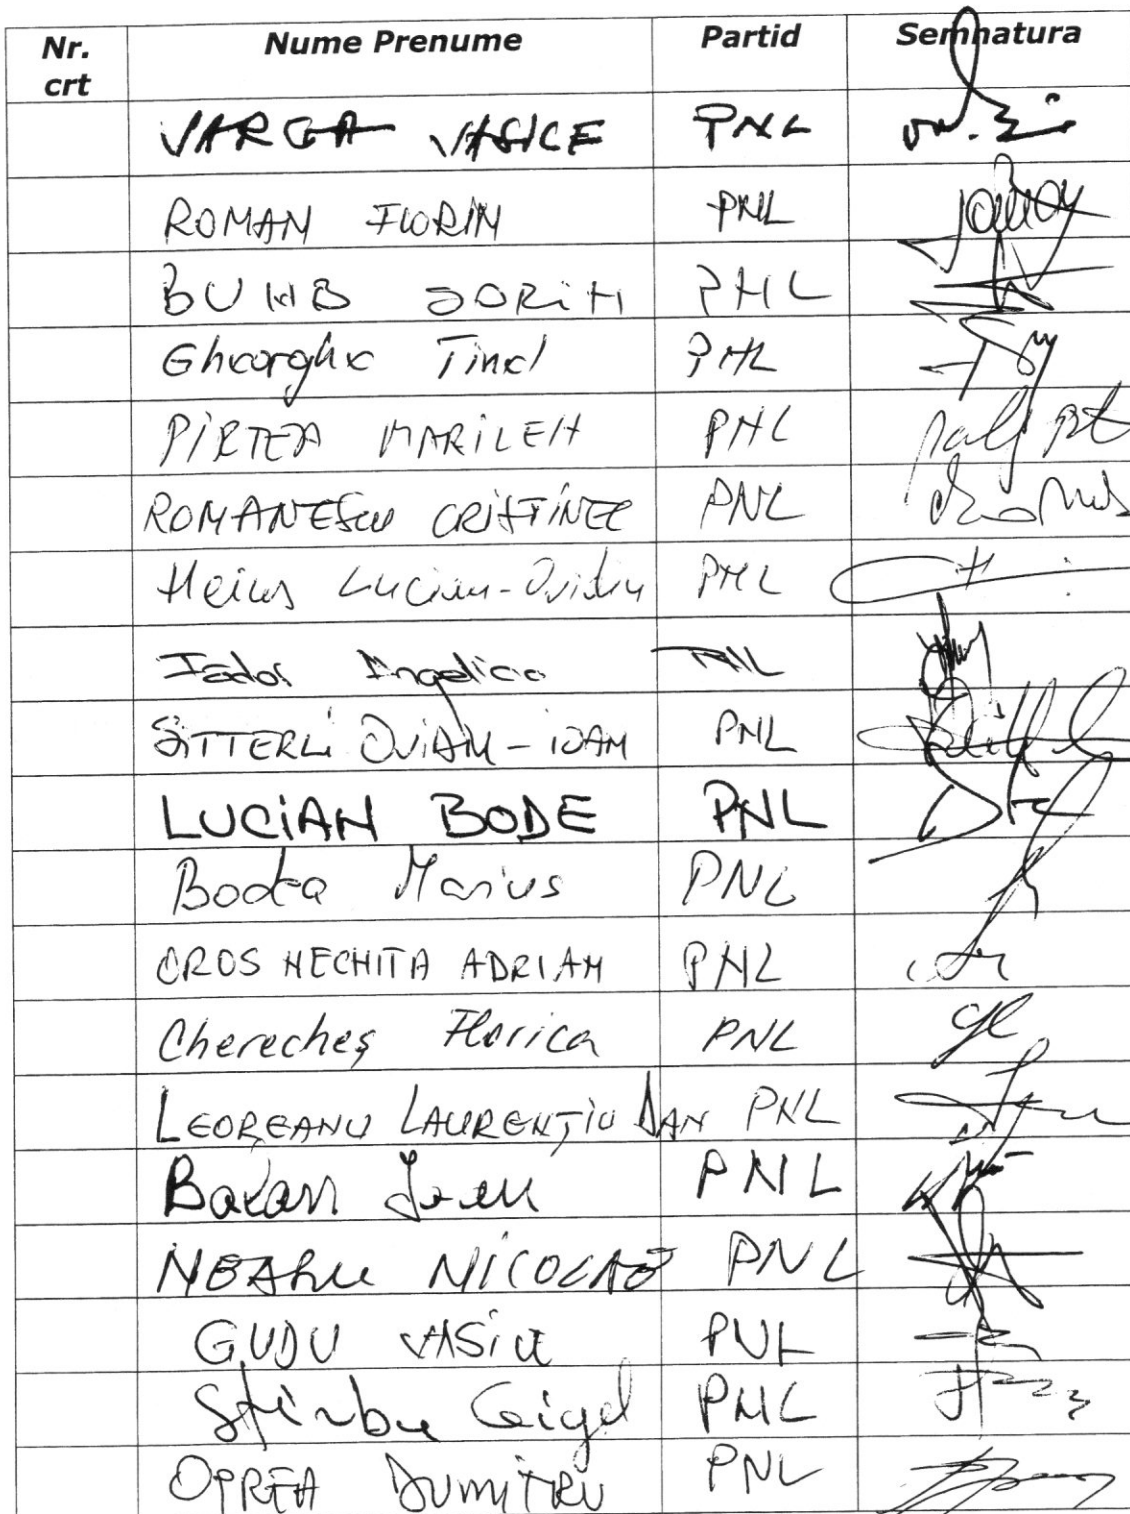 Nr. crt Nume Prenume Partid Semnatura
VARGA VASILE PNL
ROMAN FLORIN PNL
BUMB SORIN PNL
Gheorghe Tinel PNL
PIRTEA MARILEN PNL
ROMANESCU CRISTINEL PNL
Heius Lucian-Ovidiu PNL
Fador Angelica PNL
SITTERLI OVIDIU-IOAN PNL
LUCIAN BODE PNL
Bodea Marius PNL
OROS NECHITA ADRIAN PNL
Cherecheș Florica PNL
LEOREANU LAURENȚIU DAN PNL
Balan Ioan PNL
NEAGU NICOLAE PNL
GUDU VASILE PNL
Știrbu Gigel PNL
OPREA DUMITRU PNL